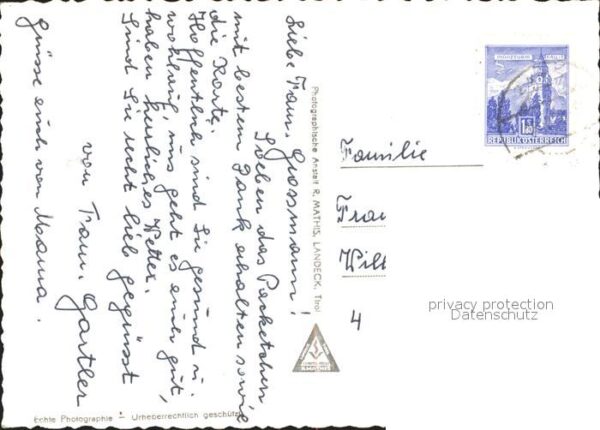 Liebe Frau Grossmann!
Soeben das Packetchen
mit bestem Dank erhalten sowie
die Karte.
Hoffentlich sind Sie gesund u.
wohlauf, uns geht es einer gut,
haben herrliches Wetter.
Sind Sie recht lieb gegrüsst
von Fam. Gartler
Grüsse auch von Mama.
Photographische Anstalt R. MATHIS, LANDECK, Tirol
Familie
Fra
Wil
4
REPUBLIK ÖSTERREICH
privacy protection
Datenschutz
Echte Photographie - Urheberrechtlich geschützt